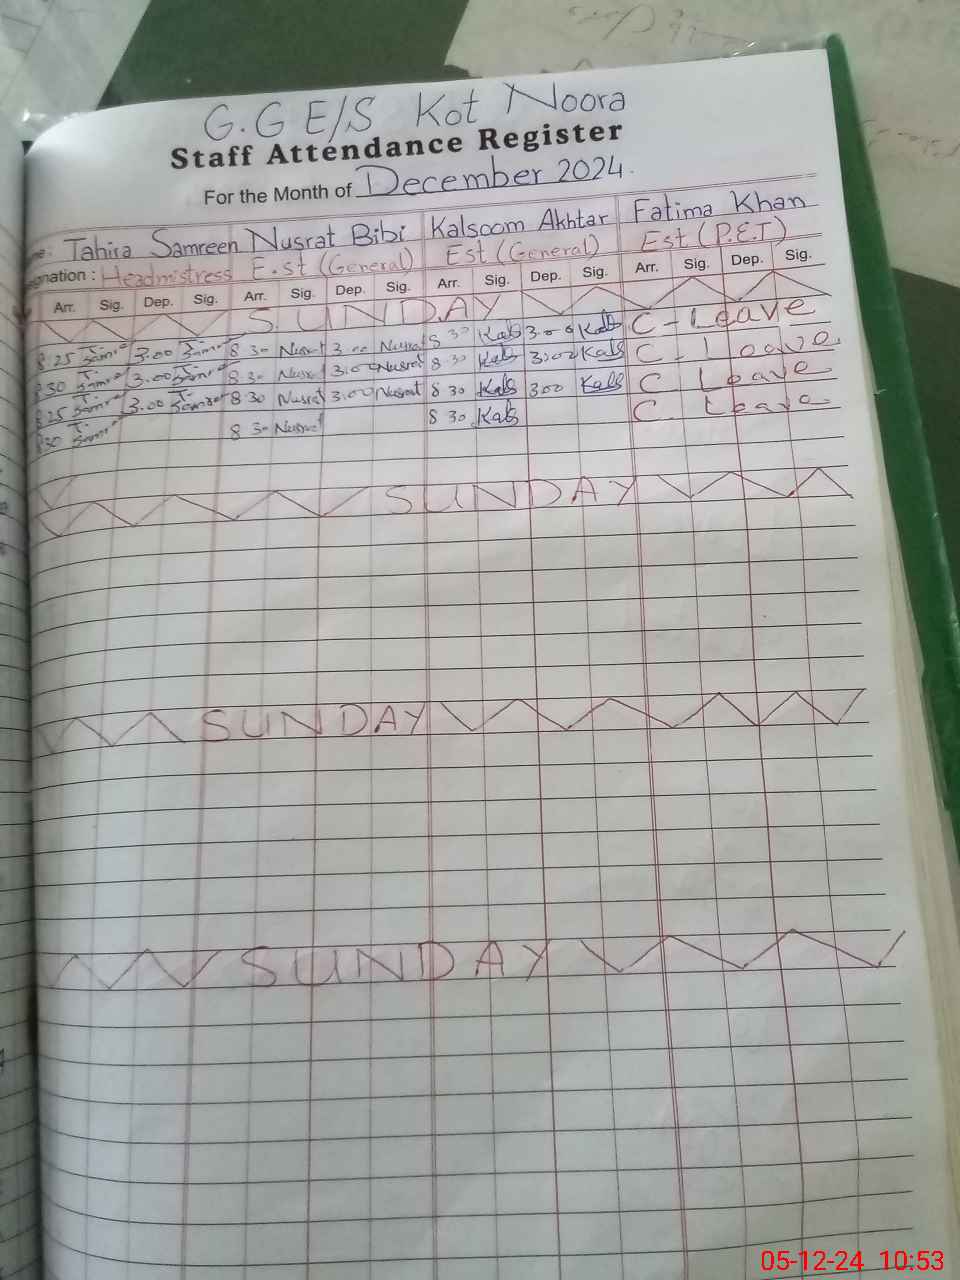 G.G E/S Kot Noora
Staff Attendance Register
For the Month of December 2024.
me: Tahira Samreen Nusrat Bibi Kalsoom Akhtar Fatima Khan
signation : Headmistress E.st (General) Est (General) Est (P.E.T)
Arr. Sig. Dep. Sig. Arr. Sig. Dep. Sig. Arr. Sig. Dep. Sig. Arr. Sig. Dep. Sig.
SUNDAY
8.25 3.00 8 30 Nusrat 3.00 Nusrat 8 30 Kals 3.00 Kals C-Leave
8.30 3.00 8 30 Nusrat 3.00 Nusrat 8 30 Kals 3.00 Kals C. Leave.
8.25 3.00 8 30 Nusrat 3.00 Nusrat 8 30 Kals 3 00 Kals C Leave
8.30 8 30 Nusrat 8 30 Kals C. Leave
SUNDAY
SUNDAY
SUNDAY
05-12-24 10:53